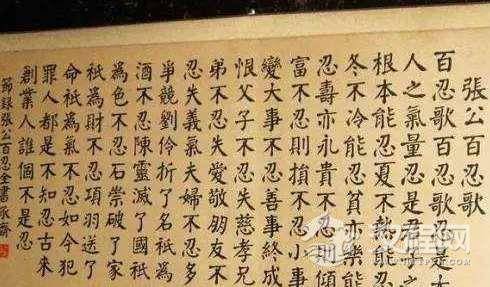 張公百忍歌
百忍歌歌百忍忍是大
人之氣量忍是君子之
根本能忍夏不熱能忍
冬不冷能忍貧亦樂能
忍壽亦永貴不忍則傾
富不忍則損不忍小事
變大事不忍善事終成
恨父子不忍失慈孝兄
弟不忍失愛敬朋友不
忍失義氣夫婦不忍多
爭競劉伶折了名祇為
酒不忍陳靈滅了國祇
為色不忍石崇破了家
祇為財不忍項羽送了
命祇為氣不忍如今犯
罪人都是不知忍古來
創業人誰個不是忍
節錄張公百忍全書